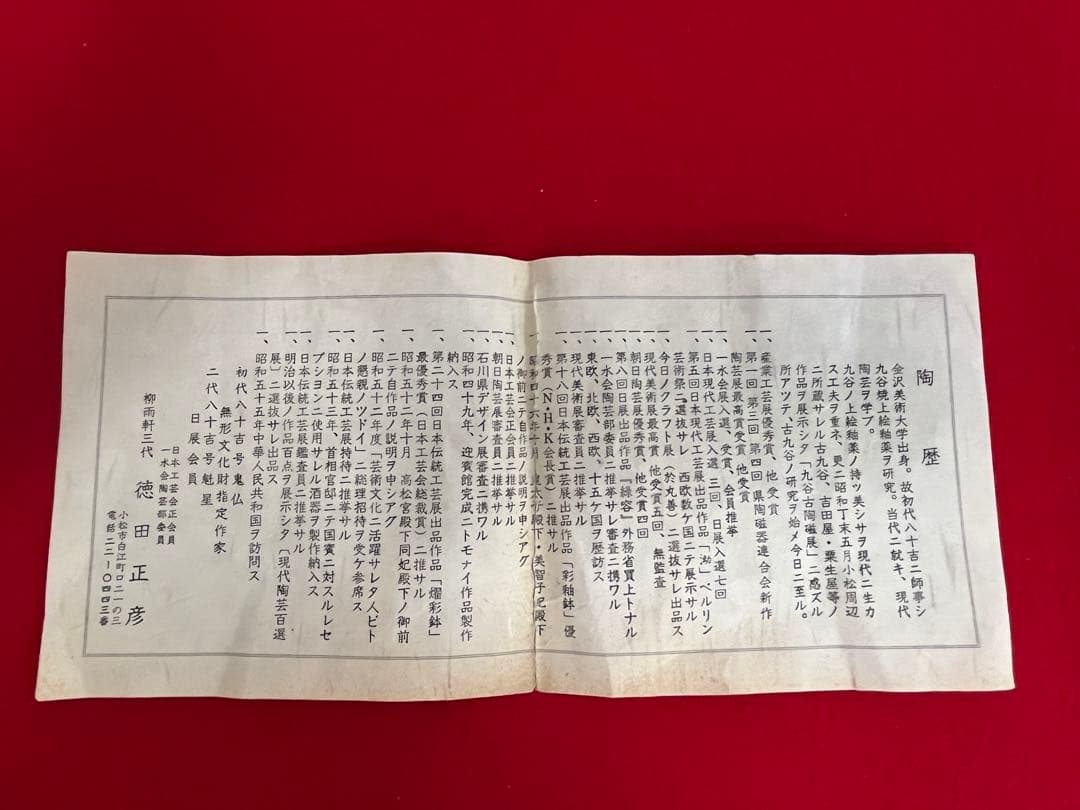 陶歴
金沢美術大学出身。故初代八十吉ニ師事シ
九谷焼上絵釉薬ヲ研究。当代ニ就キ、現代
陶芸ヲ学ブ。
九谷ノ上絵釉薬ノ持ッ美シサヲ現代ニ生カ
スエ夫ヲ重ネ、更ニ昭和丁末五月小松周辺
ニ所蔵サレル古九谷、吉田屋・粟生屋等ノ
作品ヲ展示シタ「九谷古陶磁展」ニ感ズル
所アッテ、古九谷ノ研究ヲ始メ今日ニ至ル。
一、産業工芸展優秀賞、他 受賞
一、第一回 第三回 第四回 県陶磁器連合会新作
陶芸展最高賞受賞 他受賞
一、一水会展入選、受賞、会員推挙
一、日本現代工芸展入選 三回、日展入選七回
一、第五回日本現代工芸展出品作品「泑」ベルリン
芸術祭ニ選抜サレ 西欧数ケ国ニテ展示サル
一、今日ノクラフト展（於丸善）ニ選抜サレ出品ス
一、現代美術展最高賞 他受賞五回、無監査
一、朝日陶芸展優秀賞、他受賞四回
一、第八回日展出品作品『緑容』外務省買上トナル
一、一水会陶芸部委員ニ推挙サレ審査ニ携ワル
一、東欧、北欧、西欧、十五ケ国ヲ歴訪ス
一、現代美術展審査員ニ推挙サル
一、第十八回日本伝統工芸展出品作品「彩釉鉢」優
秀賞（N・H・K会長賞）ニ推サル
一、昭和四十六年十月 皇太子殿下・美智子妃殿下
ノ御前ニテ自作品ノ説明ヲ申シアグ
一、日本工芸会正会員ニ推挙サル
一、朝日陶芸展審査員ニ推挙サル
一、石川県デザイン展審査ニ携ワル
一、昭和四十九年、迎賓館完成ニトモナイ作品製作
納入ス
一、第二十四回日本伝統工芸展出品作品「燿彩鉢」
最優秀賞（日本工芸会総裁賞）ニ推サル
一、昭和五十二年十月 高松宮殿下同妃殿下ノ御前
ニテ自作品ノ説明ヲ申シアグ
一、昭和五十二年度「芸術文化ニ活躍サレタ人ビト
ノ懇親ノツドイ」ニ総理招待ヲ受ケ参席ス
一、日本伝統工芸展特待ニ推挙サル
一、昭和五十三年、首相官邸ニテ国賓ニ対スルレセ
プションニ使用サレル酒器ヲ製作納入ス
一、日本伝統工芸展鑑査員ニ推挙サル
一、明治以後ノ作品百点ヲ展示シタ〔現代陶芸百選
展〕ニ選抜サレ出品ス
一、昭和五十五年中華人民共和国ヲ訪問ス
初代 八十吉号 鬼仏
無形文化財指定作家
二代 八十吉号 魁星
日展会員
日本工芸会正会員
一水会陶芸部委員
柳雨軒三代 徳田正彦
小松市白江町ロ二一の三
電話二二-〇四四三番